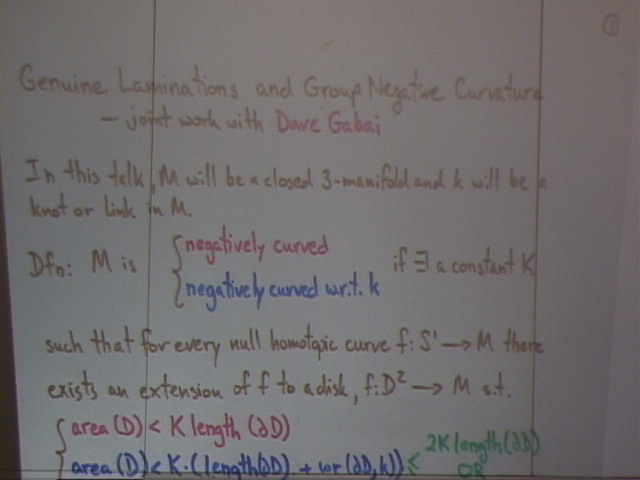 ①
Genuine Laminations and Group Negative Curvature
— joint work with Dave Gabai
In this talk, M will be a closed 3-manifold and k will be a
knot or link in M.
Dfn: M is { negatively curved
negatively curved w.r.t. k
if ∃ a constant K
such that for every null homotopic curve f: S¹ → M there
exists an extension of f to a disk, f: D² → M s.t.
{ area (D) < K length (∂D)
area (D) < K·(length(∂D) + wr(∂D,k)) ≤ 2K length(∂D)
OR